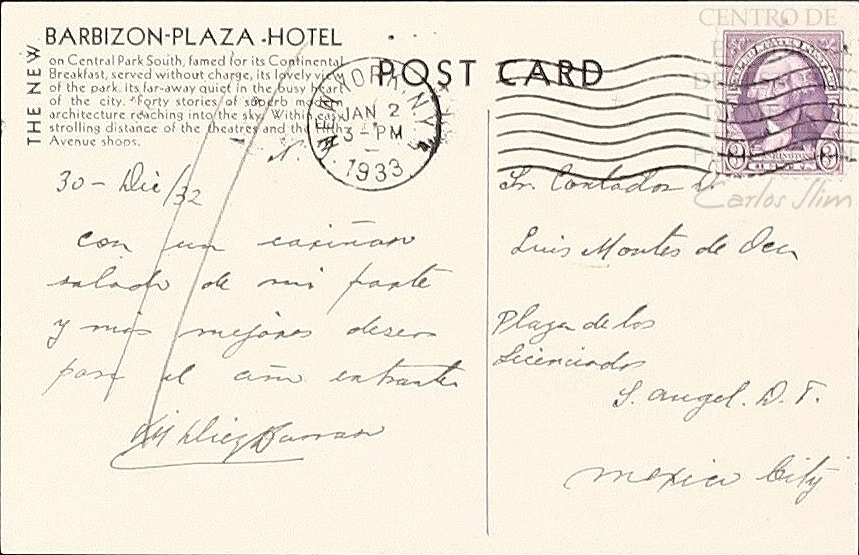 THE NEW
BARBIZON-PLAZA-HOTEL
on Central Park South, famed for its Continental
Breakfast, served without charge, its lovely view
of the park, its far-away quiet in the busy heart
of the city. Forty stories of superb modern
architecture reaching into the sky. Within easy
strolling distance of the theatres and the Fifth
Avenue shops.
POST CARD
NEW YORK, N.Y.
JAN 2
3-PM
1933
CENTRO DE
Carlos Slim
3 WASHINGTON 3
30 - Dic/32
con un cariñoso
saludo de mi parte
y mis mejores deseos
para el año entrante
Sr. Contador D.
Luis Montes de Oca
Plaza de los
Licenciados
S. Angel. D. F.
Mexico City